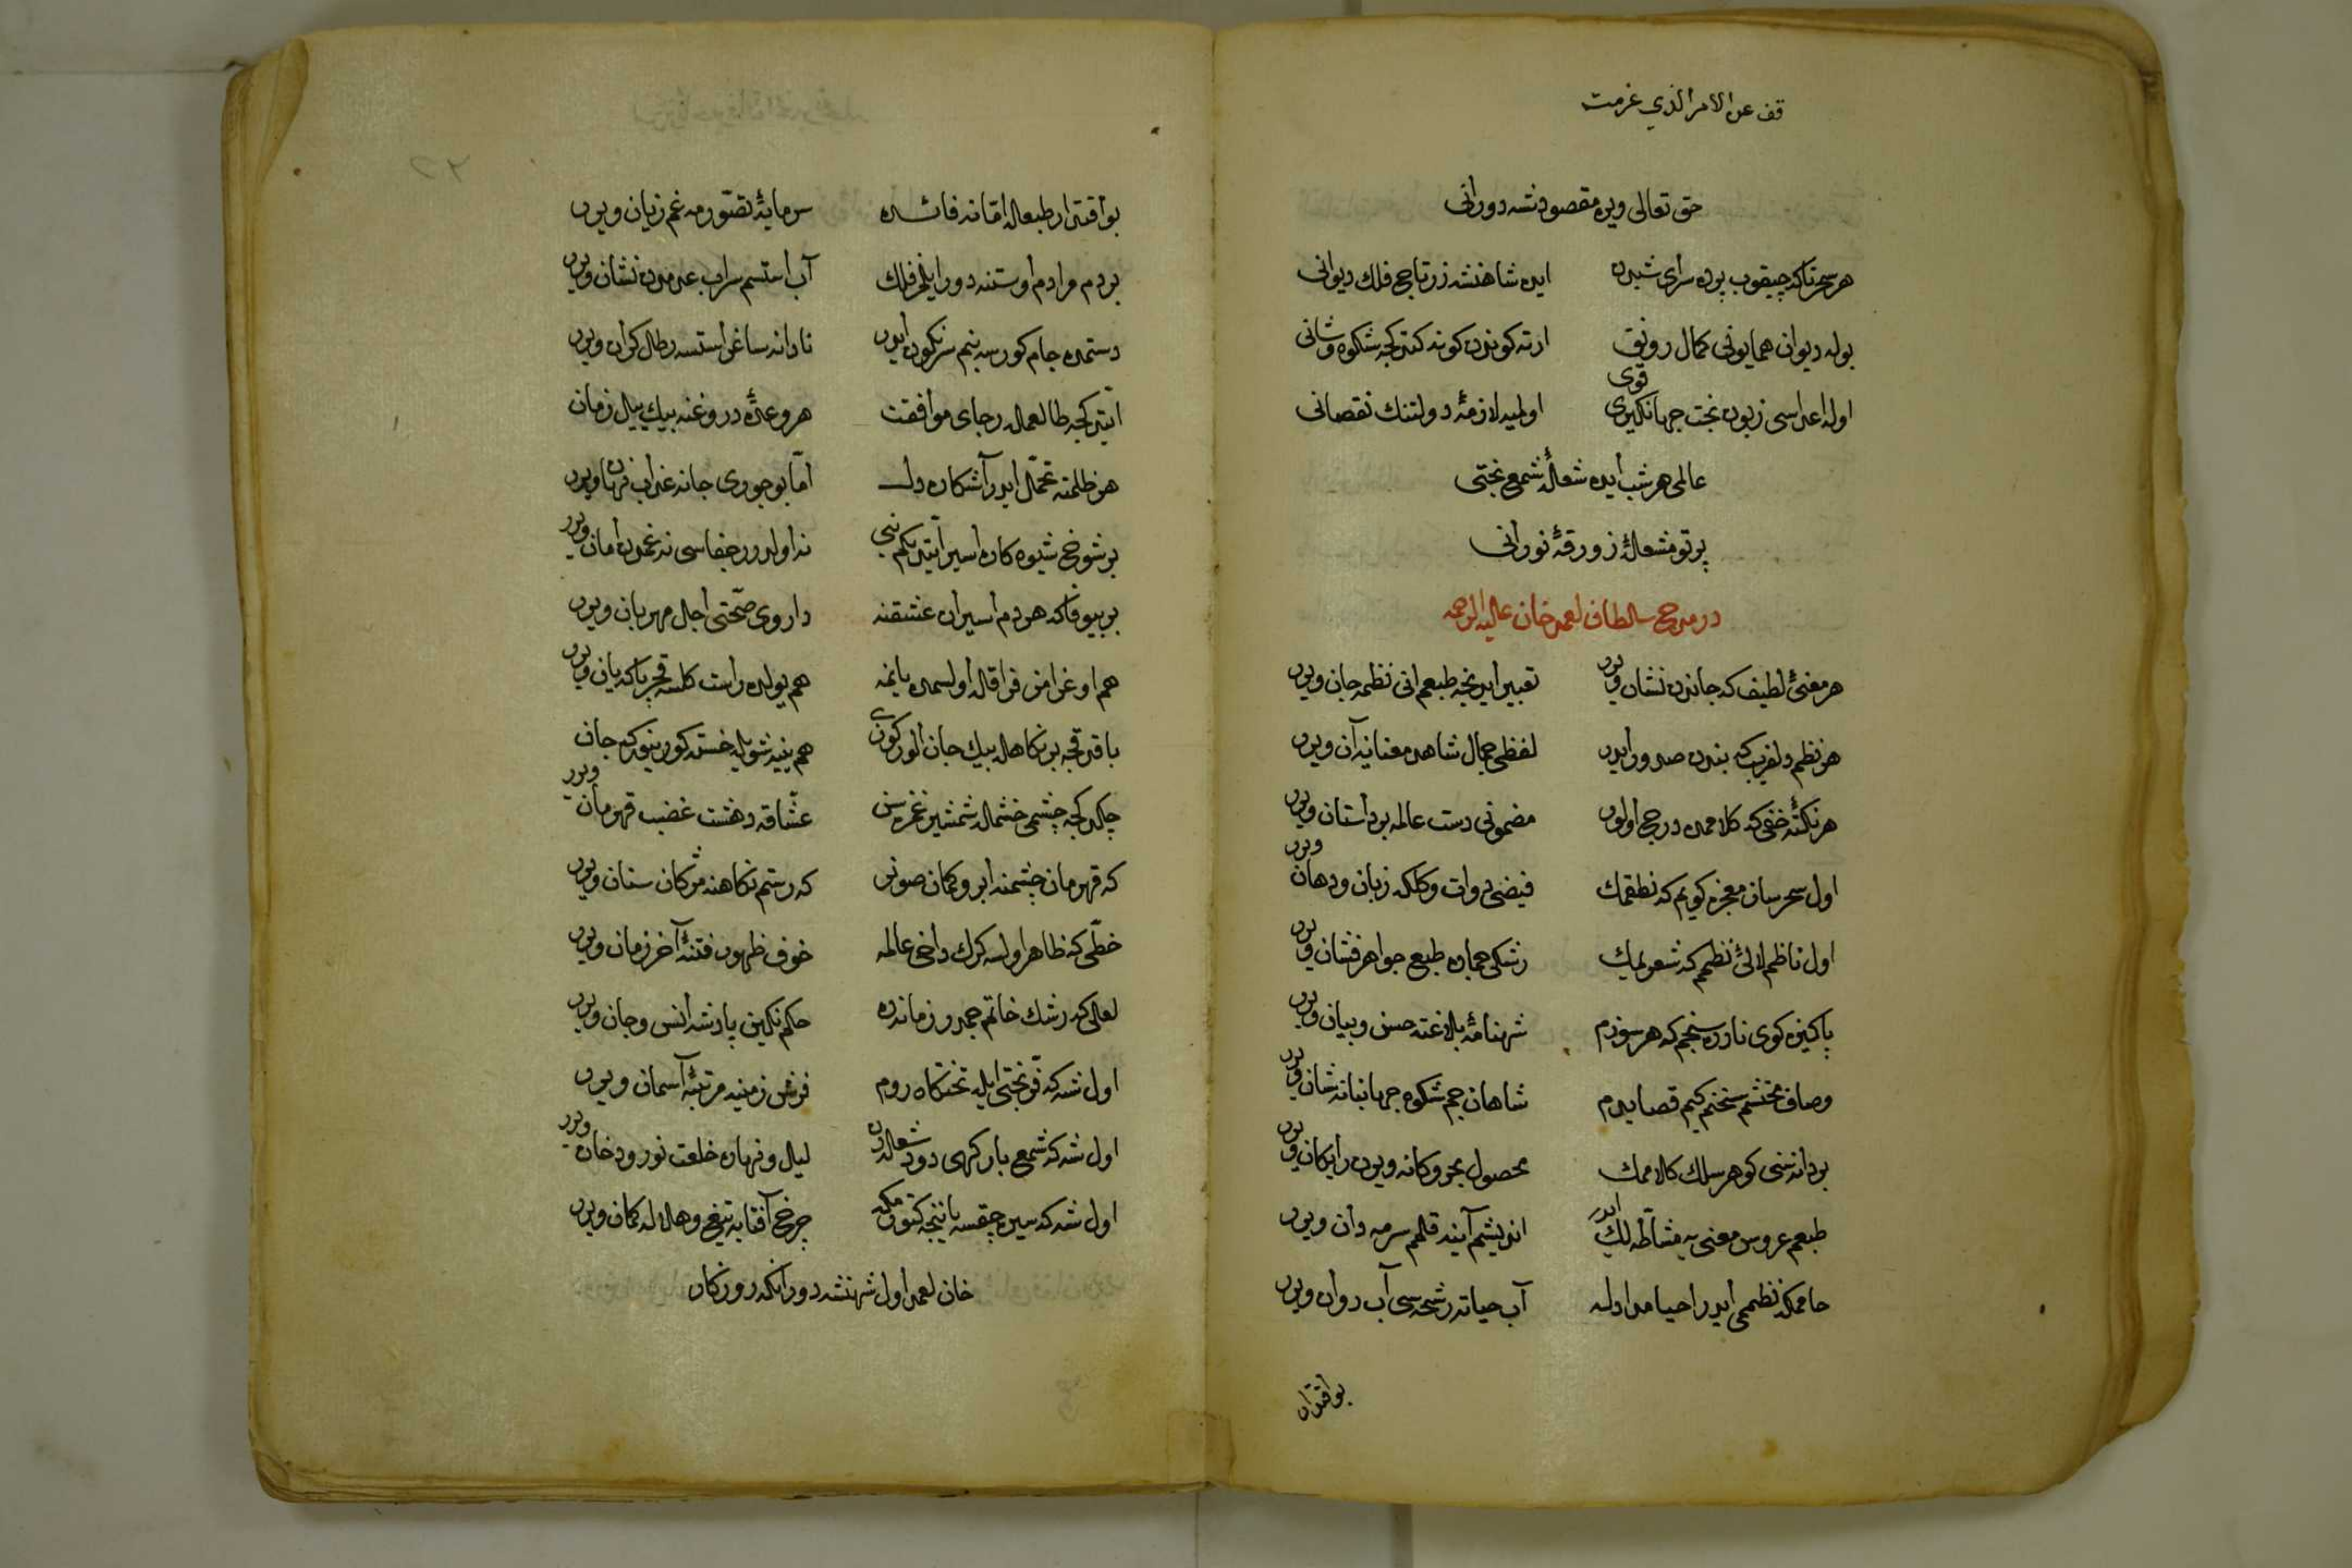 قف عن الامر الذي عزمت
حق تعالی ویره مقصودنشه دورانی
هر سحر تاکه چیقوب پرده سرای شبدن ایده شاهنشه زرتاج فلك دیوانی
بوله دیوان همایونی کمال رونق ارته کوندن کونه کتدکجه شکوه و شانی
اوله اعداسی زبون بخت جهانکیری قوی اولمیه لازمۀ دولتنك نقصانی
عالمی هر شب ایده شعلۀ شمع بختی
پرتو مشعلۀ زورقۀ نورانی
در مدح سلطان احمد خان علیه الرحمه
هر معنیٔ لطیف که جاندن نشان ویرر تعبیر ایدنجه طبعم انی نظمه جان ویرر
هر نظم دلفریب که بندن صدور ایدر لفظی جمال شاهد معنایه آن ویرر
هر نکتۀ خفی که کلاممده درج اولور مضمونی دست عالمه بر داستان ویرر
اول سحرساز معجزه کویم که نطقمك فیضی دوات و کلکه زبان و دهان ویرر
اول ناظم لآلیٔ نظمم که شعریمك رشکی بحاره طبع جواهرفشان ویرر
پاکیزه کوی نادره سنجم که هر سوزم شهنامۀ بلاغته حسن و بیان ویرر
وصاف محتشم سخنم کیم قصایدم شاهان جم شکوه جهانبانه شان ویرر
بر دانه سنی کوهر سلك کلاممك محصول بحر و کانه ویرن رایکان ویرر
طبعم عروس معنی یه مشاطه لك ایدر اندیشم آینه قلمم سرمه دان ویرر
جاممکه نظممی ایدر احیا مداد ایله آب حیاته رشحه سی آب روان ویرر
بو اقتدار
بو اقتدار طبعله اما نه فائده سرمایۀ تصورمه غم زیان ویرر
بر دم مرادم اوستنه دور ایلمز فلك آب استسم سراب عدمدن نشان ویرر
دستمده جام کورسه بنم سرنکون ایدر نادانه ساغر استسه رطل کران ویرر
ایتدکجه طالعمله رجای موافقت هر وعدۀ دروغنه بیك ییل زمان
هر ظلمنه تحمل ایدر آشکاره دل اما بو جوری جانه عذاب نهان ویرر
بر شوخ شیوه کاره اسیر ایتدیکم بنی نه اولدرر جفاسی نه غمدن امان ویرر
بر بیوفا که هر دم اسیران عشقنه داروی صحتی اجل مهربان ویرر
هم اوغرامز فراقله اولسمده یانمه هم یولده راست کلسه قچر یا که یان ویرر
باقدقجه بر نکاهله بیك جان الور کوزی هم ینه شویله خسته کورینورکه جان ویرر
چکدکجه چشمی خشمله شمشیر غمزه سن عشاقه دهشت غضب قهرمان ویرر
که قهرمان چشمنه ابرو کمان صونر که رستم نکاهنه مژکان سنان ویرر
خطی که ظاهر اولسه کرك داخی عالمه خوف ظهور فتنۀ آخر زمان ویرر
لعلی که رشك خاتم جمدر زمانده حکم نکین پادشه انس و جان ویرر
اول شه که فر بختی ایله تختکاه روم فرش زمینه مرتبۀ آسمان ویرر
اول شه که شمع بارکهی دود شعله دن لیل و نهاره خلعت نور و دخان ویرر
اول شه که سیره چقسه یاننجه کتورمکه چرخ آفتابه تیغ و هلاله کمان ویرر
خان احمد اول شهنشه دورانکه روزکار